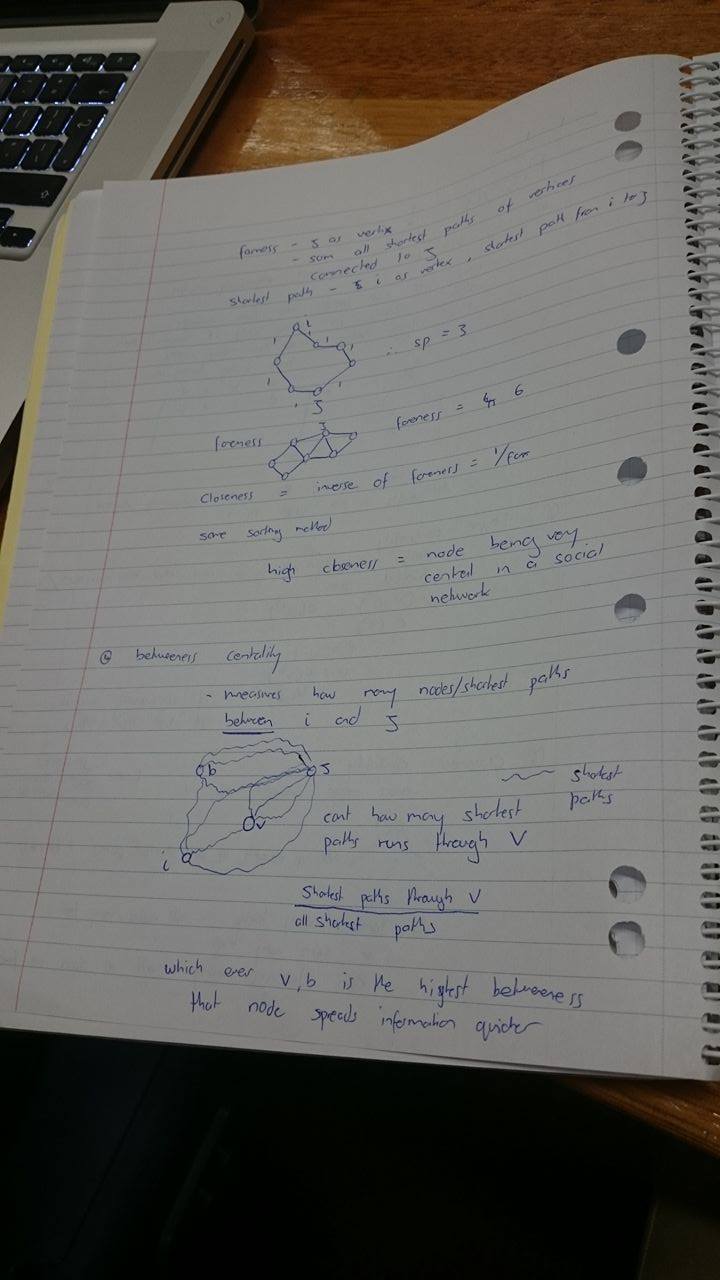 farness - J as vertix
- sum all shortest paths of vertices
connected to J
shortest path - i as vertex, shortest path from i to J
i
1 1 1 1
∴ sp = 3
1
1 1
J
J
farness
farness = 6
Closeness = inverse of farness = 1/farn
same sorting method
high closeness = node being very
central in a social
network
④ betweeness centality
- measures how many nodes/shortest paths
between i and J
b J
shotest
paths
V
cont how many shortest
paths runs through V
i
Shortest paths through V
all shortest paths
which ever V, b is the highest betweeness
that node speads information quicker